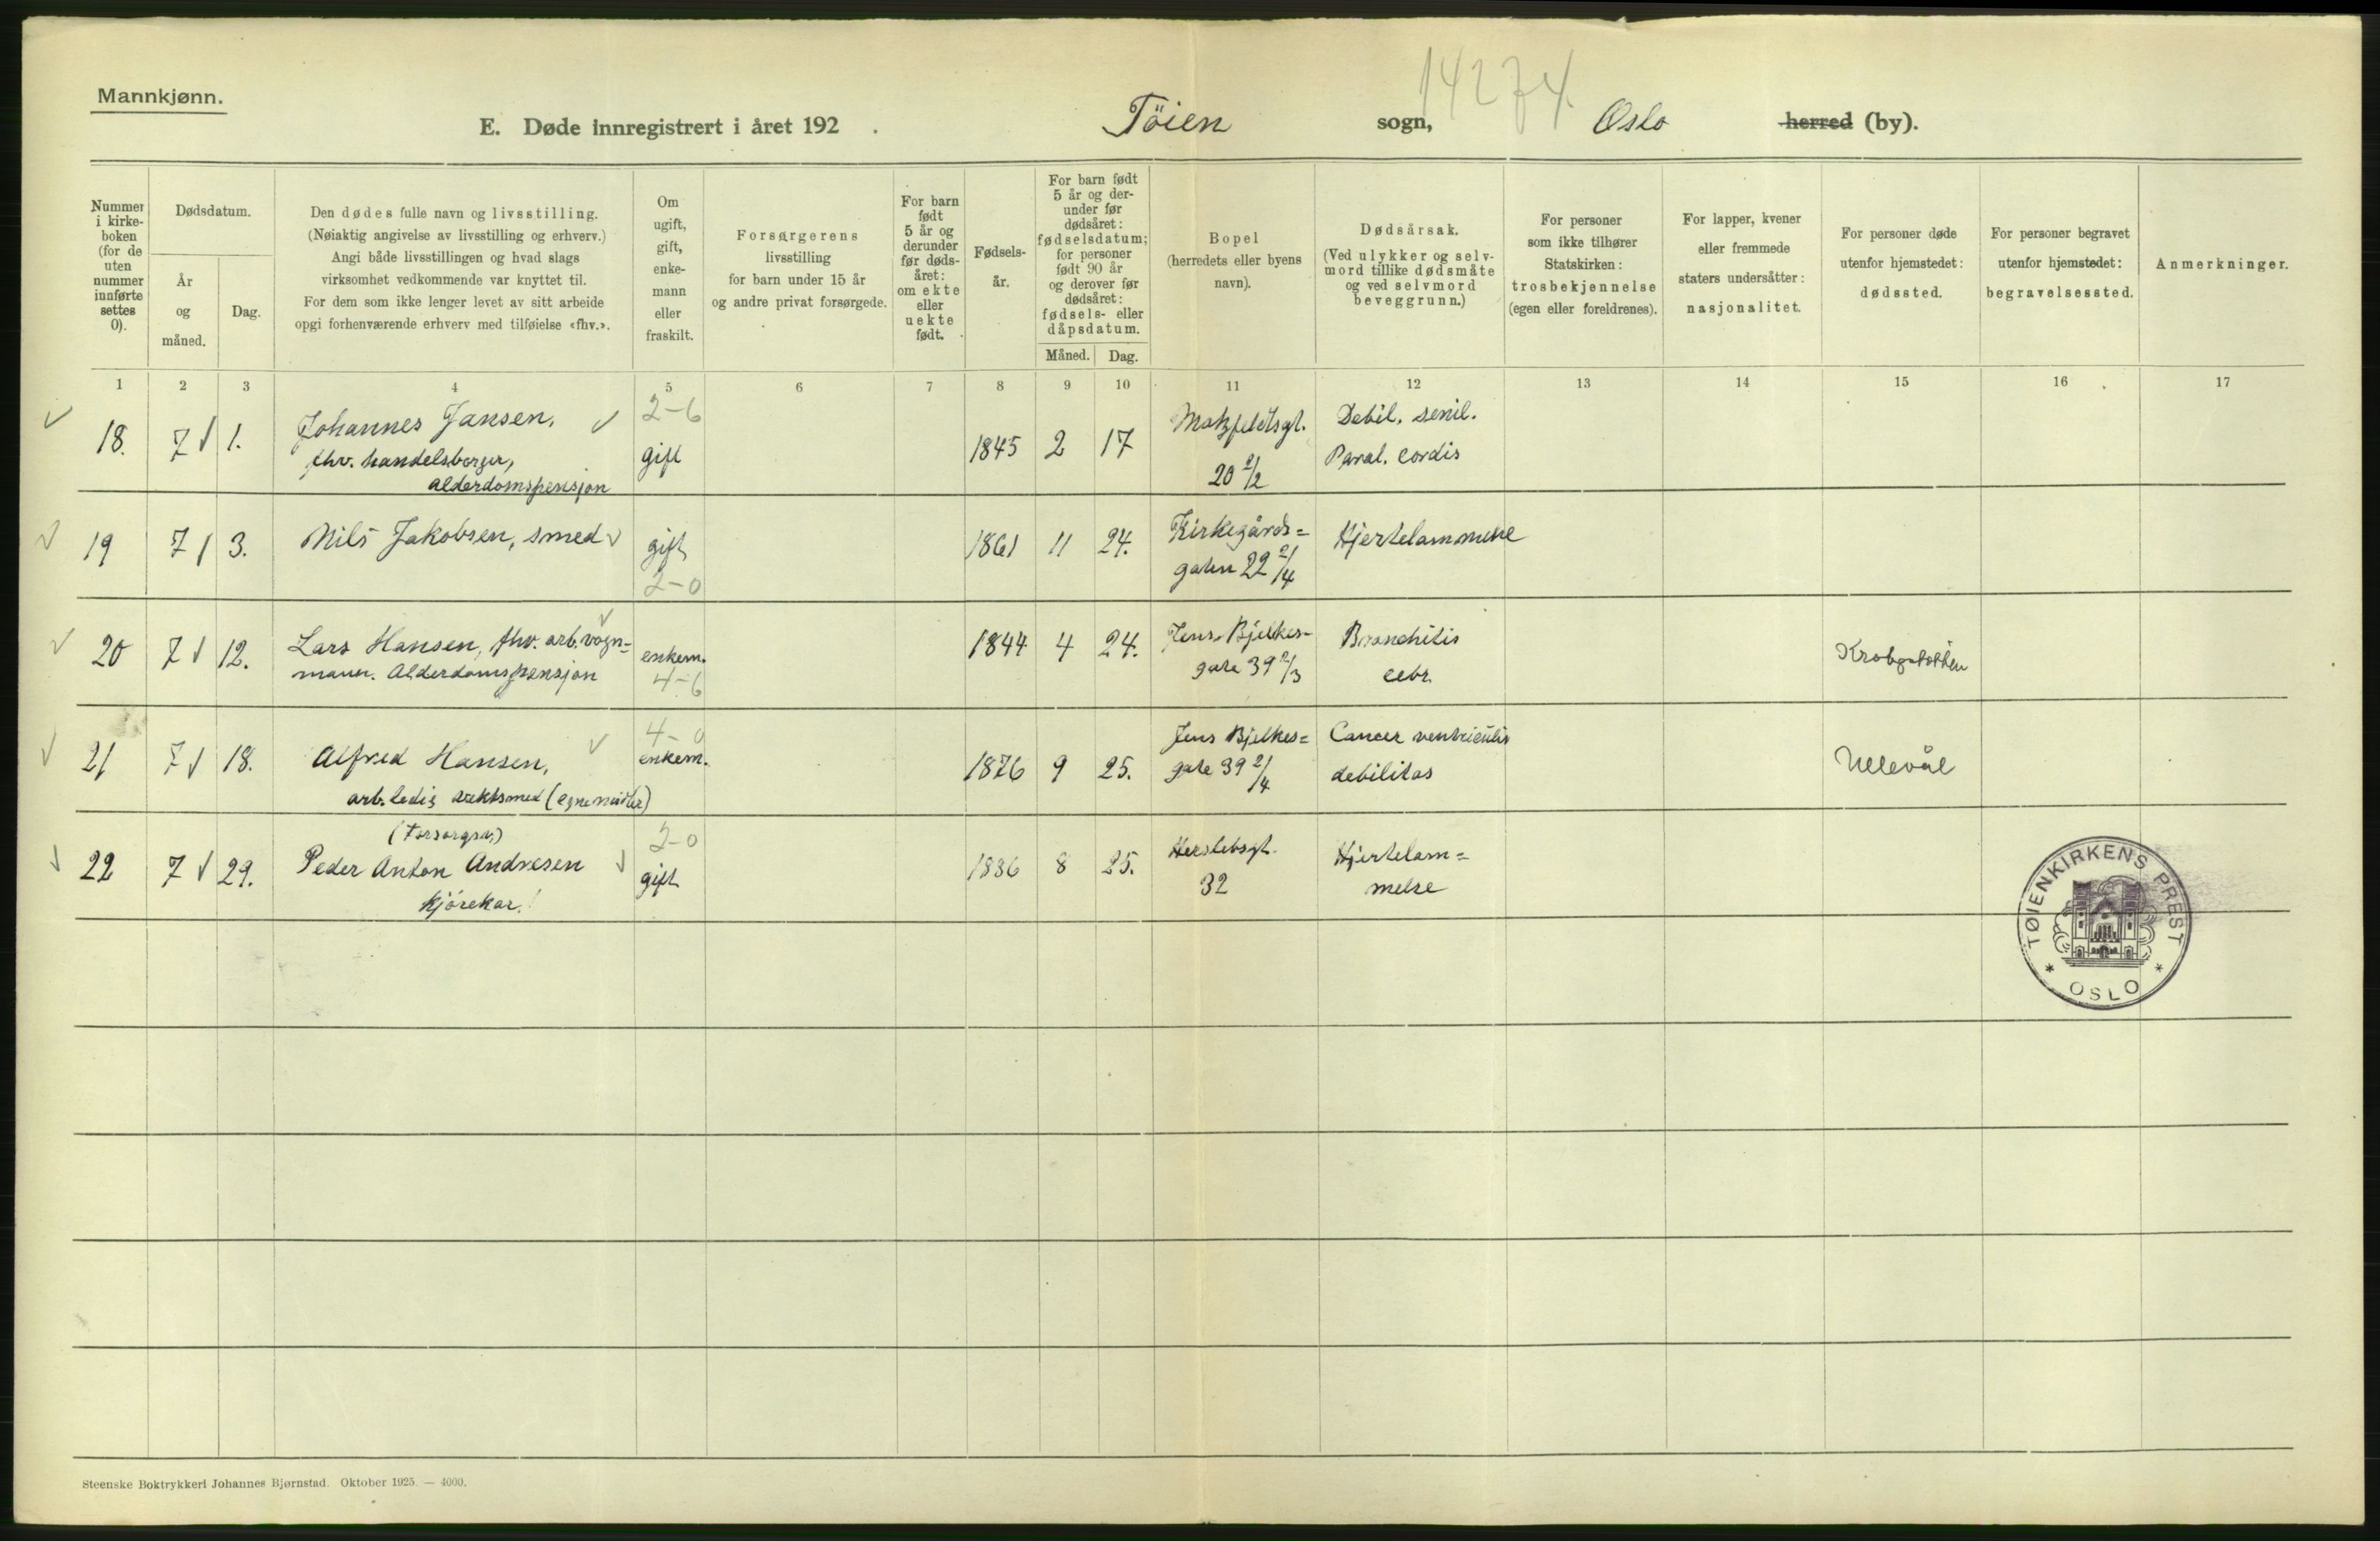 Mannkjønn.
14274.
E. Døde innregistrert i året 192 . Töien sogn, Oslo herred (by).
Nummer i kirke-boken (for de uten nummer innførte settes 0).
Dødsdatum.
År og måned.
Dag.
Den dødes fulle navn og livsstilling.
(Nøiaktig angivelse av livsstilling og erhverv.)
Angi både livsstillingen og hvad slags
virksomhet vedkommende var knyttet til.
For dem som ikke lenger levet av sitt arbeide
opgi forhenværende erhverv med tilføielse «fhv.».
Om ugift, gift, enke-mann eller fraskilt.
Forsørgerens
livsstilling
for barn under 15 år
og andre privat forsørgede.
For barn født 5 år og derunder før døds-året: om ekte eller uekte født.
Fødsels-år.
For barn født 5 år og der-under før dødsåret: fødselsdatum; for personer født 90 år og derover før dødsåret: fødsels- eller dåpsdatum.
Måned. Dag.
Bopel
(herredets eller byens
navn).
Dødsårsak.
(Ved ulykker og selv-
mord tillike dødsmåte
og ved selvmord
beveggrunn.)
For personer
som ikke tilhører
Statskirken:
trosbekjennelse
(egen eller foreldrenes).
For lapper, kvener
eller fremmede
staters undersåtter:
nasjonalitet.
For personer døde
utenfor hjemstedet:
dødssted.
For personer begravet
utenfor hjemstedet:
begravelsessted.
Anmerkninger.
1 2 3 4 5 6 7 8 9 10 11 12 13 14 15 16 17
18. 7 1. Johannes Jansen, 2-6 gift 1845 2 17 Motzfeldtsgt. Debil. senil.
fhv. handelsborger, 20 2/2 Paral. cordis
alderdomspensjon
19 7 3. Nils Jakobsen, smed gift 1861 11 24. Kirkegårds= Hjertelammelse
2-0 gaten 22 2/4
20 7 12. Lars Hansen, fhv. arb. vogn= enkem. 1844 4 24. Jens Bjelkes- Bronchitis Krohgstøtten
mann. Alderdomspensjon 4-6 gate 39 2/3 cebr.
21 7 18. Alfred Hansen, 4-0 enkem. 1876 9 25. Jens Bjelkes= Cancer ventriculis Ullevål
arb.ledig vektsmed (egne midler) gate 39 2/4 debilitas
22 7 29. (Forsorgsv.) 2-0
Peder Anton Andresen gift 1886 8 25. Herslebsgt. Hjertelam=
kjørekar. 32 melse
TØIENKIRKENS PREST
* OSLO *
Steenske Boktrykkeri Johannes Bjørnstad. Oktober 1925. — 4000.